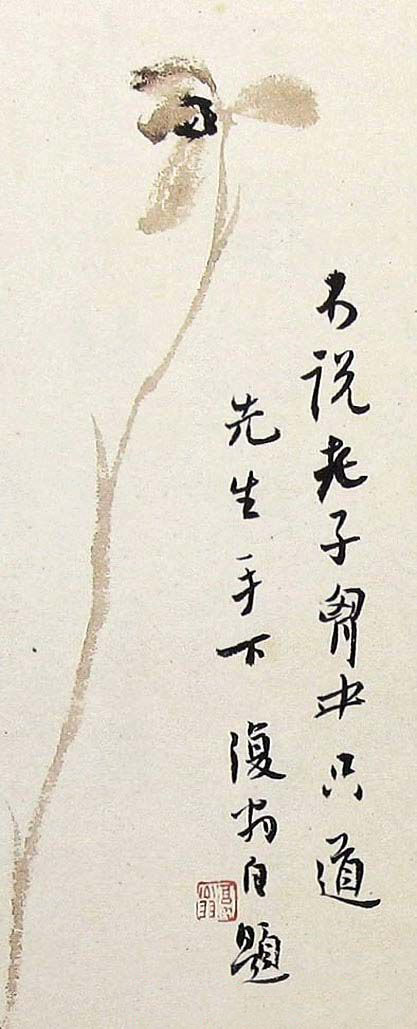 不説老子胷中只道
先生手下 復堂自題